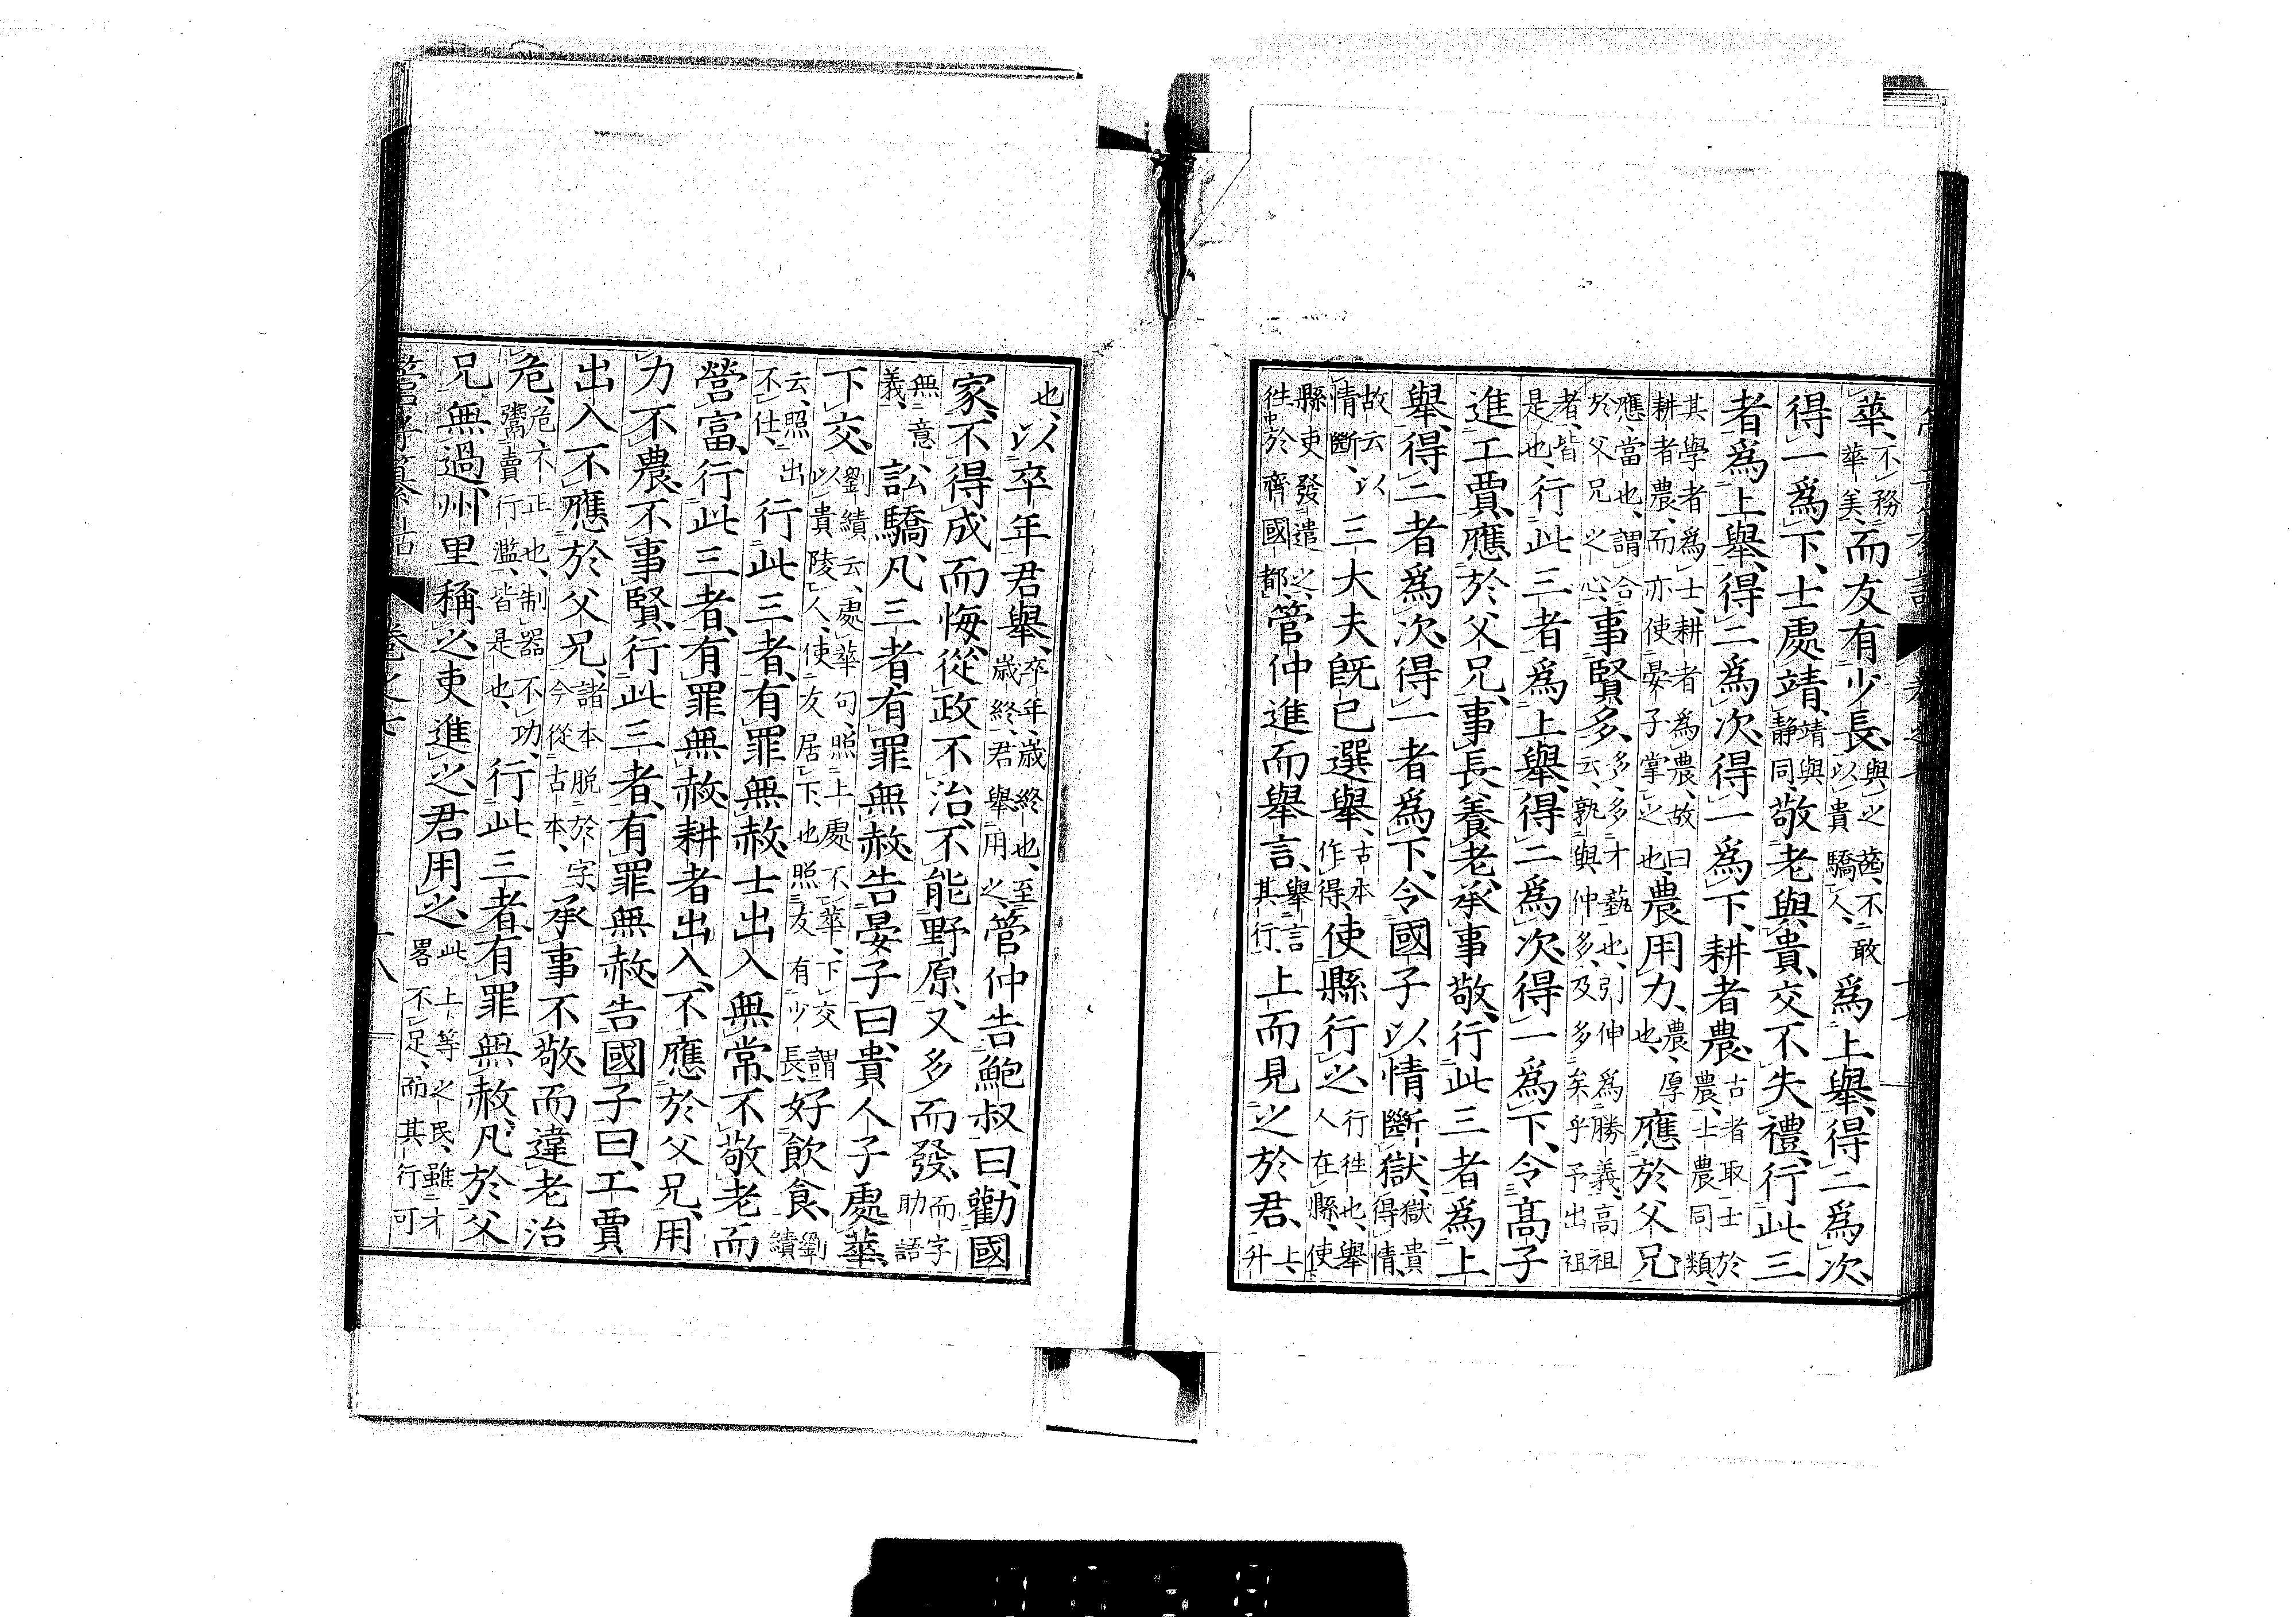 華、不務華美、而友有少長、與之齒、不敢以貴驕人、爲上舉、得二爲次、
得一爲下、士處靖、靖與靜同、敬老與貴、交不失禮、行此三
者爲上舉、得二爲次、得一爲下、耕者農、古者取士於農、士農同類、
其學者爲士、耕者爲農、故曰耕者農、而亦使晏子掌之也、農用力、農、厚也、應於父兄、
應、當也、謂合於父兄之心、事賢多、多、多才藝也、引伸爲勝義、高祖云、孰與仲多、及多矣乎予出祖
者、皆是也、行此三者爲上舉、得二爲次、得一爲下、令高子
進工賈、應於父兄、事長養老、承事敬、行此三者爲上
舉、得二者爲次、得一者爲下、令國子以情斷獄、獄貴得情、
故云以情斷、三大夫旣已選舉、古本作得、使縣行之、行往也、舉人在縣、使
縣吏發遣之、往於齊國都、管仲進而舉言、舉言其行、上而見之於君、上、升
也、以卒年君舉、卒年、歲終也、至歲終、君舉用之、管仲告鮑叔曰、勸國
家、不得成而悔、從政不治、不能野原、又多而發、而字助語
無意義、訟驕、凡三者、有罪無赦、告晏子曰、貴人子處華、
下交、劉績云、處華句、照上處不華、下交謂以貴陵人、使友居下也、照友有少長、好飲食、劉績
云、照出不仕、行此三者、有罪無赦、士出入無常、不敬老而
營富、行此三者、有罪無赦、耕者出入、不應於父兄、用
力不農、不事賢、行此三者、有罪無赦、告國子曰、工賈
出入不應於父兄、諸本脱於字、今從古本、承事不敬、而違老治
危、危、不正也、制器不功、鬻賣行濫、皆是也、行此三者、有罪無赦、凡於父
兄無過、州里稱之、吏進之、君用之、此上等之民、雖才畧不足、而其行可
管子纂詁 卷之七 十八